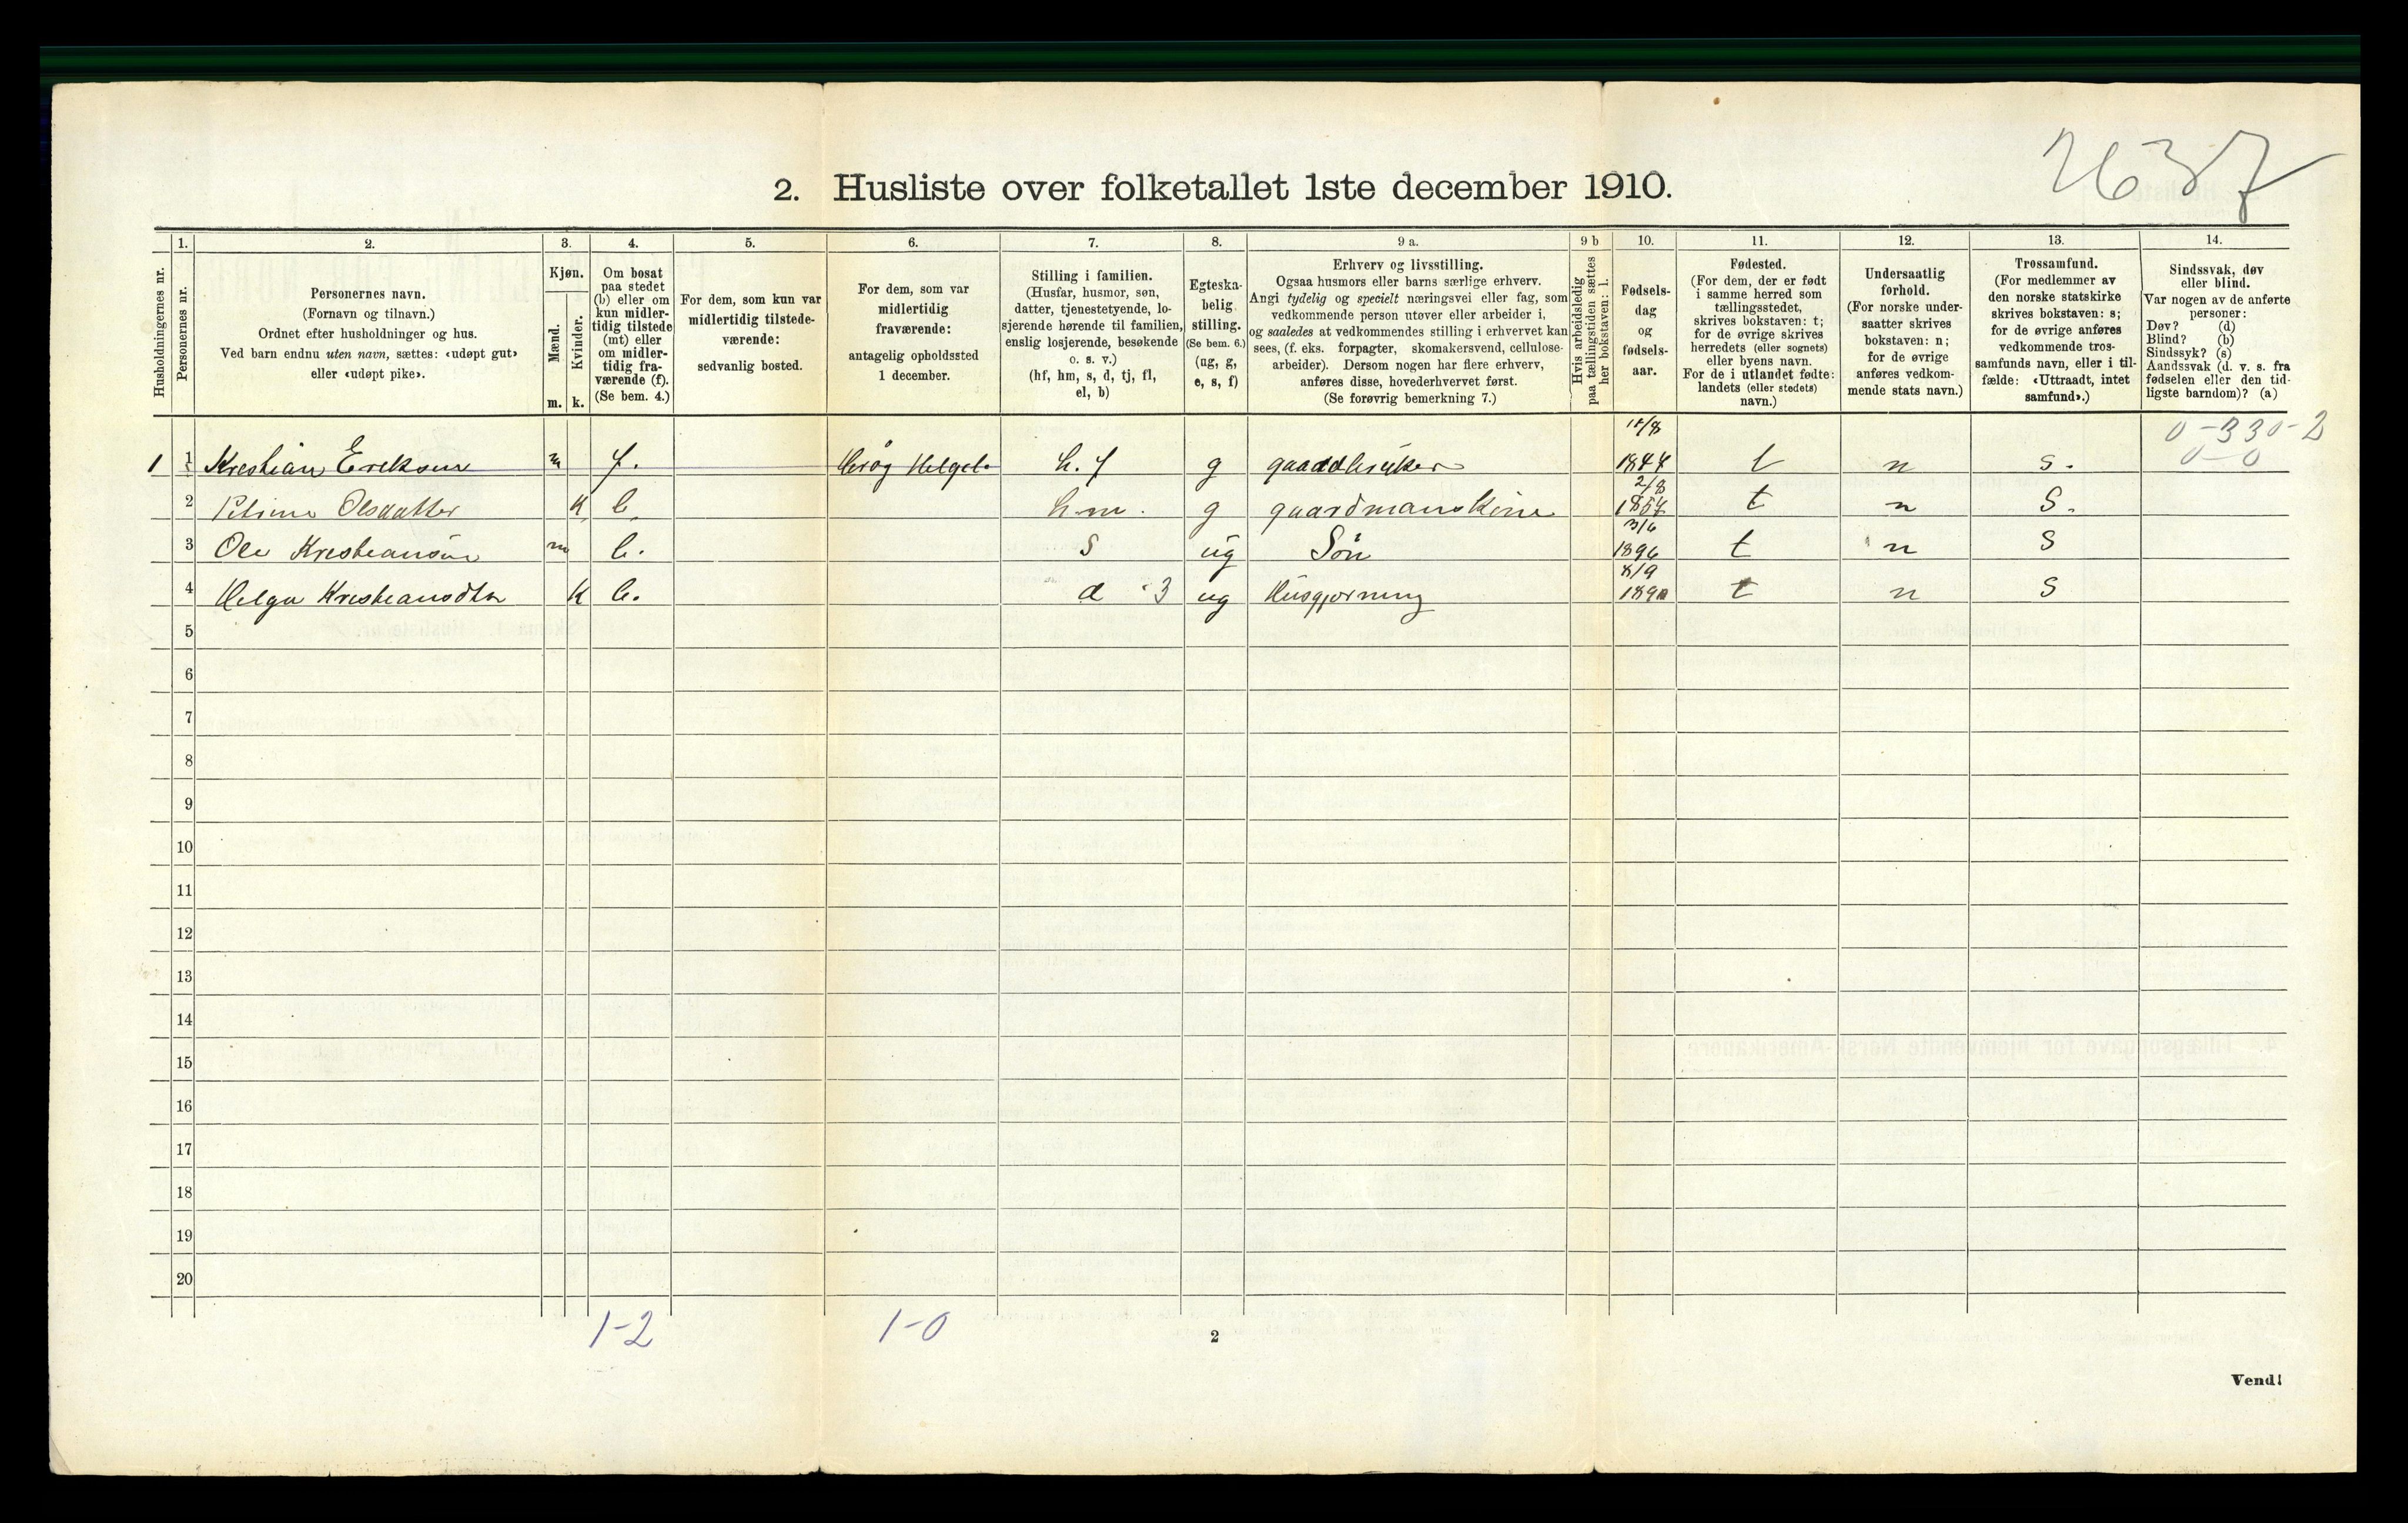 2637
2. Husliste over folketallet 1ste december 1910.
Husholdningernes nr.
1. Personernes nr.
2. Personernes navn.
(Fornavn og tilnavn.)
Ordnet efter husholdninger og hus.
Ved barn endnu uten navn, sættes: «udøpt gut»
eller «udøpt pike».
3. Kjøn.
Mænd. m.
Kvinder. k.
4. Om bosat
paa stedet
(b) eller om
kun midler-
tidig tilstede
(mt) eller
om midler-
tidig fra-
værende (f).
(Se bem. 4.)
5. For dem, som kun var
midlertidig tilstede-
værende:
sedvanlig bosted.
6. For dem, som var
midlertidig
fraværende:
antagelig opholdssted
1 december.
7. Stilling i familien.
(Husfar, husmor, søn,
datter, tjenestetyende, lo-
sjerende hørende til familien,
enslig losjerende, besøkende
o. s. v.)
(hf, hm, s, d, tj, fl,
el, b)
8. Egteska-
belig
stilling.
(Se bem. 6.)
(ug, g,
e, s, f)
9 a. Erhverv og livsstilling.
Ogsaa husmors eller barns særlige erhverv.
Angi tydelig og specielt næringsvei eller fag, som
vedkommende person utøver eller arbeider i,
og saaledes at vedkommendes stilling i erhvervet kan
sees, (f. eks. forpagter, skomakersvend, cellulose-
arbeider). Dersom nogen har flere erhverv,
anføres disse, hovederhvervet først.
(Se forøvrig bemerkning 7.)
9 b Hvis arbeidsledig
paa tællingstiden sættes
her bokstaven: l.
10. Fødsels-
dag
og
fødsels-
aar.
11. Fødested.
(For dem, der er født
i samme herred som
tællingsstedet,
skrives bokstaven: t;
for de øvrige skrives
herredets (eller sognets)
eller byens navn.
For de i utlandet fødte:
landets (eller stedets)
navn.)
12. Undersaatlig
forhold.
(For norske under-
saatter skrives
bokstaven: n;
for de øvrige
anføres vedkom-
mende stats navn.)
13. Trossamfund.
(For medlemmer av
den norske statskirke
skrives bokstaven: s;
for de øvrige anføres
vedkommende tros-
samfunds navn, eller i til-
fælde: «Uttraadt, intet
samfund».)
14. Sindssvak, døv
eller blind.
Var nogen av de anførte
personer:
Døv? (d)
Blind? (b)
Sindssyk? (s)
Aandssvak (d. v. s. fra
fødselen eller den tid-
ligste barndom)? (a)
0-330-2
0-0
1 1 Krestian Ereksen m f. Herøg Helgel. h. f g gaardbruker 1844 t n s.
2 Petrine Olsdatter K b. h m. g gaardmanskone 2/8 1857 t n S.
3 Ole Krestiansøn m b. S ug Søn 3/6 1896 t n S
4 Helga Krestiansdtr K b. d 3 ug Husgjørning 8/9 1890 t n S
5
6
7
8
9
10
11
12
13
14
15
16
17
18
19
20
1-2 1-0
2
Vend!